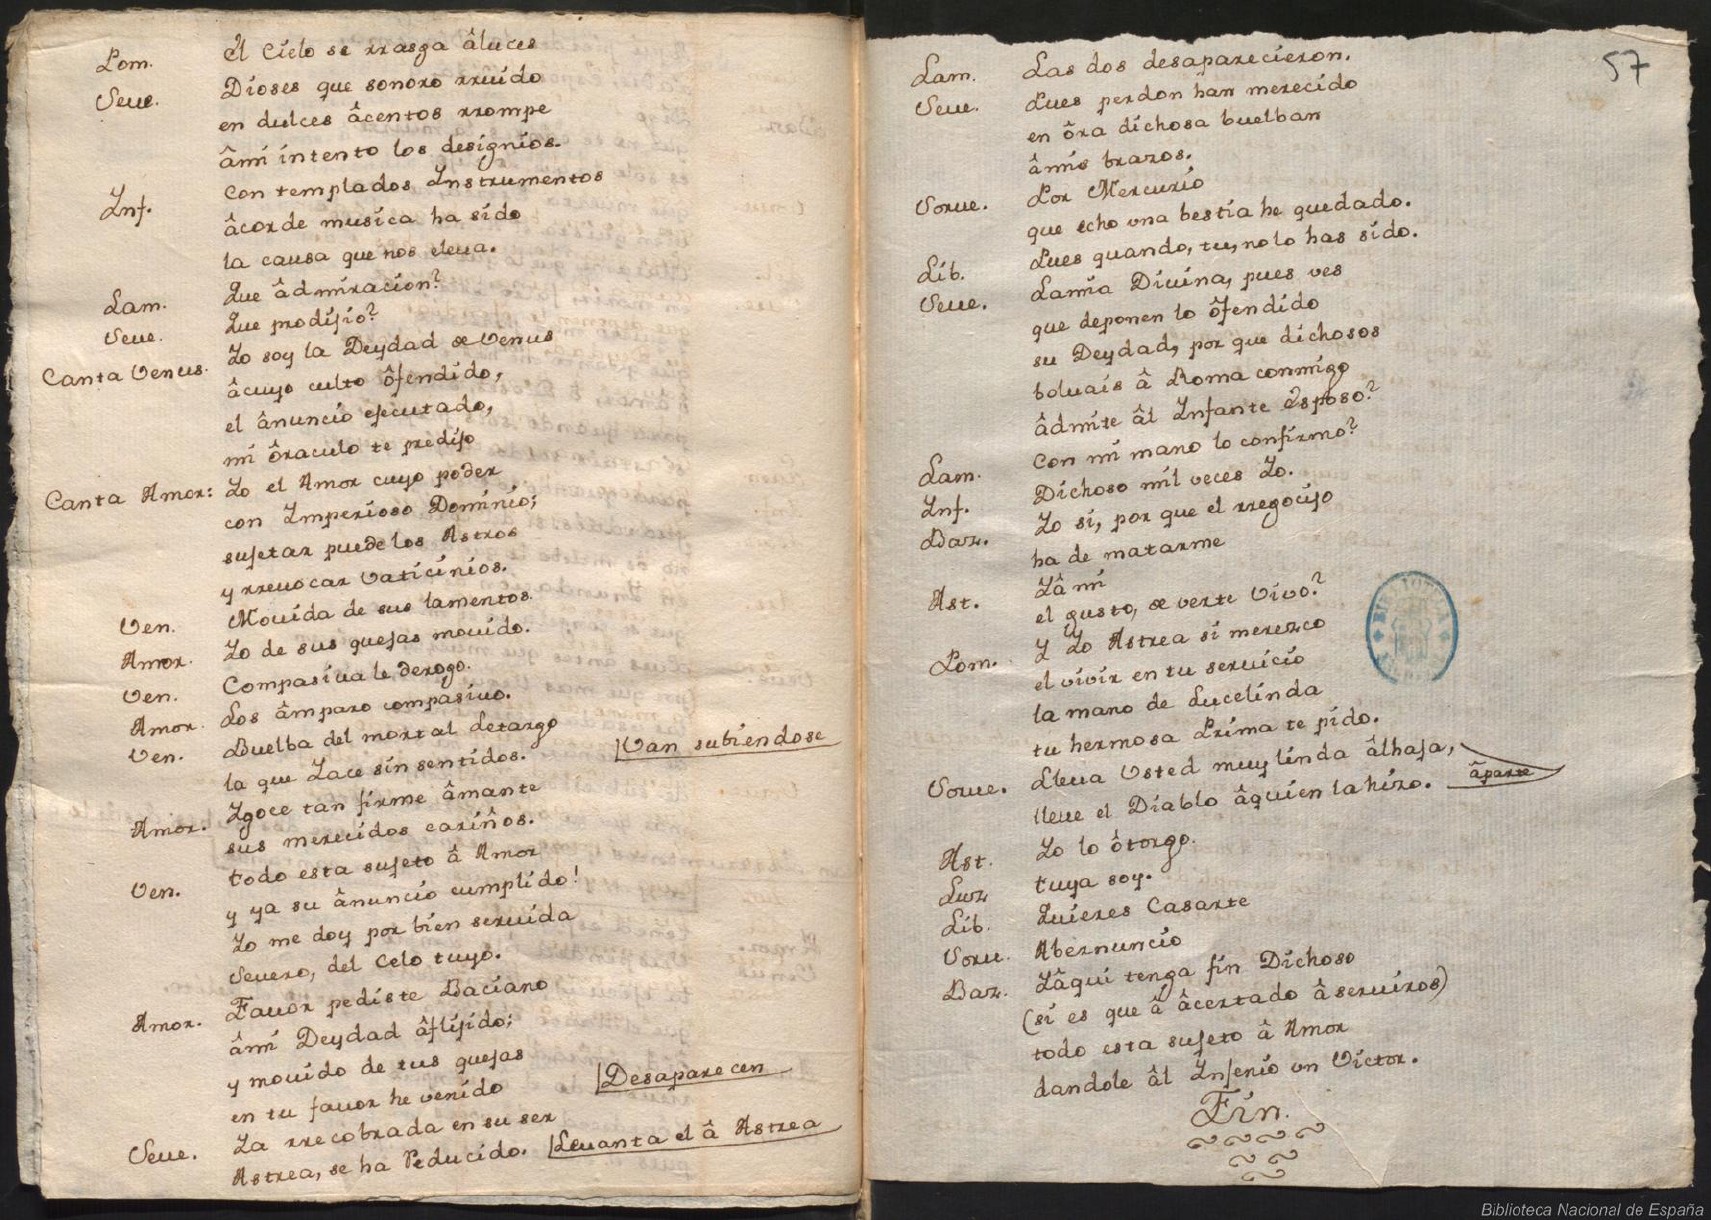 Pom. El Cielo se rrasga âluces
Seue. Dioses que sonoro rruido
en dulces âcentos rrompe
âmi intento los designios.
Inf. Con templados Instrumentos
âcorde musica ha sido
la causa que nos eleua.
Lam. Que âdmiracion?
Seue. Que prodijio?
Canta Venus. Yo soy la Deydad de Venus
âcuyo culto ôfendido,
el ânuncio ejecutado,
mi ôraculo te predijo
Canta Amor: Yo el Amor cuyo poder
con Imperioso Dominio;
sujetar puede los Astros
y rreuocar Vaticinios.
Ven. Mouida de sus lamentos.
Amor. Yo de sus quejas mouido.
Ven. Compasiua le derogo.
Amor. Los âmparo compasiuo.
Ven. Buelba del mortal Letargo
la que Yace sin sentidos.
|Van subiendose
Amor. Ygoce tan firme âmante
sus merecidos cariños.
Ven. todo esta sujeto â Amor
y ya su ânuncio cumplido!
Yo me doy por bien seruida
Seuero, del Celo tuyo.
Amor. Fauor pediste Baciano
âmi Deydad âflijido;
y mouido de tus quejas
en tu fauor he venido
|Desaparecen
Seue. Ya rrecobrada en su ser
Astrea, se ha Reducido. |Leuanta el â Astrea
57
Lam. Las dos desaparecieron.
Seue. Pues perdon han merecido
en ôra dichosa buelban
âmis brazos.
Sorue. Por Mercurio
que echo vna bestia he quedado.
Lib. Pues quando, tu, no lo has sido.
Seue. Lamia Diuina, pues ves
que deponen lo ôfendido
su Deydad, por que dichosos
boluais â Roma conmigo
âdmite âl Infante Esposo?
Lam. Con mi mano lo confirmo?
Inf. Dichoso mil veces Yo.
Baz. Yo si, por que el rregocijo
ha de matarme
Ast. Yâ mi
el gusto, de verte Vivo?
Pom. Y Yo Astrea si merezco
el vivir en tu seruicio
la mano de Lucelinda
tu hermosa Prima te pido.
Sorue. Lleua Usted muy linda âlhaja,
lleue el Diablo âquien la hizo. âparte
Ast. Yo lo ôtorgo.
Luz tuya soy.
Lib. Quieres Casarte
Soru. Abernuncio
Baz. Yâqui tenga fin Dichoso
(si es que â âcertado âseruiros)
todo esta sujeto â Amor
dandole âl Injenio vn Victor.
Fin.
BIBLIOTECA
Biblioteca Nacional de España